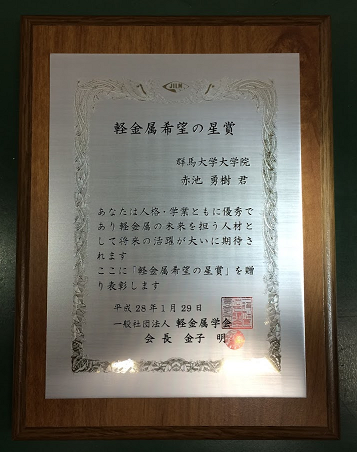 JILM
軽金属希望の星賞
群馬大学大学院
赤池 勇樹 君
あなたは人格・学業ともに優秀で
あり軽金属の未来を担う人材と
して将来の活躍が大いに期待さ
れます
ここに「軽金属希望の星賞」を贈
り表彰します
平成28年1月29日
一般社団法人 軽金属学会
会長 金子 明